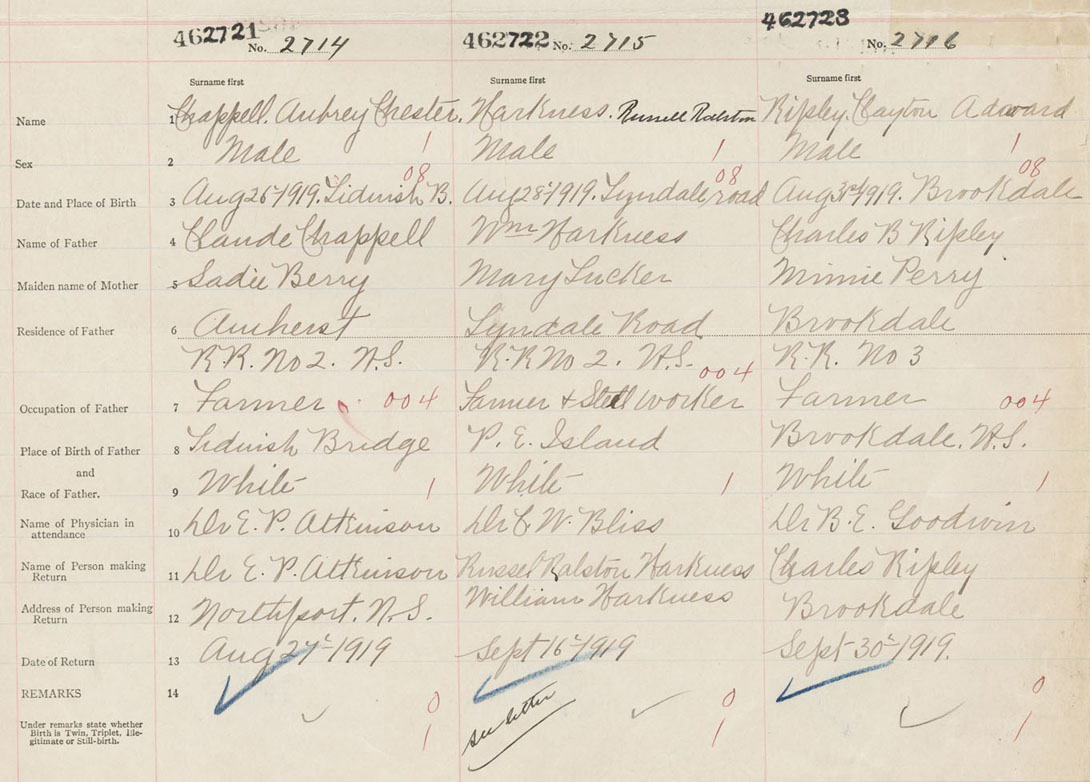 462721 No. 2714 462722 No. 2715 462723 No. 2716
Surname first Surname first Surname first
Name 1 Chappell, Aubrey Chester. Harkness. Russell Ralston Ripley, Clayton Adward
Sex 2 Male 1 Male 1 Male 1
08 08 08
Date and Place of Birth 3 Aug 26 1919. Tidnish B. Aug 28 1919. Lyndale road Aug 31 1919. Brookdale
Name of Father 4 Claude Chappell Wm Harkness Charles B Ripley
Maiden name of Mother 5 Sadie Berry Mary Tucker Minnie Perry
Residence of Father 6 Amherst Lyndale Road Brookdale
R.R. No 2. N.S. R.R No 2. N.S. R.R. No 3
Occupation of Father 7 Farmer 004 Farmer + Steel worker 004 Farmer 004
Place of Birth of Father 8 Tidnish Bridge P. E. Island Brookdale. N.S.
and
Race of Father. 9 White 1 White 1 White 1
Name of Physician in attendance 10 Dr E. P. Atkinson Dr C. W. Bliss Dr B. E. Goodwin
Name of Person making Return 11 Dr E. P. Atkinson Russel Ralston Harkness Charles Ripley
Address of Person making Return 12 Northport. N.S. William Harkness Brookdale
Date of Return 13 Aug 27 1919 Sept 16 1919 Sept 30 1919.
REMARKS 14 0 0 0
Under remarks state whether Birth is Twin, Triplet, Ille-
gitimate or Still-birth. 1 see letter 1 1